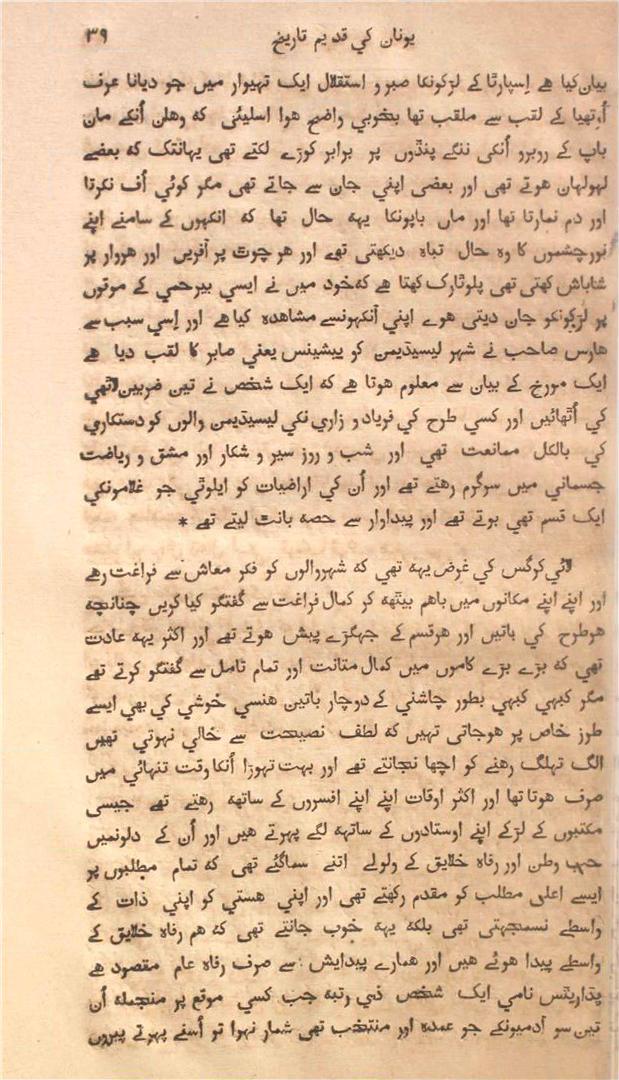 ۳۹ یونان کي قدیم تاریخ
بیان کیا هے اِسپارٹا کے لڑکونکا صبر و استقلال ایک تہیوار میں جو دیانا عرف
اُرتھیا کے لقب سے ملقب تھا بخوبي واضح هوا اسلیئی که وهاں اُنکے ماں
باپ کے روبرو اُنکی ننگے پنڈوں پر برابر کوڑے لگتے تھی یہانتک که بعضے
لہولہاں هوتے تھی اور بعضی اپني جان سے جاتے تھی مگر کوئي اُف نکرتا
اور دم نمارتا تھا اور ماں باپونکا یہه حال تھا که انکھوں کے سامنے اپنے
نورچشموں کا وه حال تباه دیکھتی تھے اور هر چوٹ پر آفریں اور هروار پر
شاباش کہتی تھی پلوٹارک کہتا هے که خود میں نے ایسي بیرحمي کے موتوں
پر لڑکونکو جان دیتی هوے اپني آنکھونسے مشاهده کیا هے اور اِسي سبب سے
هارس صاحب نے شہر لیسیڈیمن کو پیشینس یعني صابر کا لقب دیا هے
ایک مورخ کے بیان سے معلوم هوتا هے که ایک شخص نے تین ضربین لاٹھي
کي اُٹھائیں اور کسي طرح کي فریاد و زاري نکي لیسیڈیمن والوں کو دستکاري
کي بالکل ممانعت تھي اور شب و روز سیر و شکار اور مشق و ریاضت
جسماني میں سرگرم رهتے تھے اور اُن کي اراضیات کو ایلوٹي جو غلامونکي
ایک قسم تھي بوتے تھے اور پیداوار سے حصه بانٹ لیتے تھے *
لائي کرگس کي غرض یہه تھي که شہروالوں کو فکر معاش سے فراغت رهے
اور اپنے اپنے مکانوں میں باهم بیٹھه کر کمال فراغت سے گفتگو کیا کریں چنانچه
هرطرح کي باتیں اور هرقسم کے جھگڑے پیش هوتے تھے اور اکثر یہه عادت
تھي که بڑے بڑے کاموں میں کمال متانت اور تمام تامل سے گفتگو کرتے تھے
مگر کبھي کبھي بطور چاشني کے دوچار باتیں هنسي خوشي کي بھي ایسے
طرز خاص پر هوجاتی تھیں که لطف نصیحت سے خالي نہوتي تھیں
الگ تھلگ رهنے کو اچھا نجانتے تھے اور بہت تھوڑا اُنکا وقت تنہائي میں
صرف هوتا تھا اور اکثر اوقات اپنے اپنے افسروں کے ساتھه رهتے تھے جیسی
مکتبوں کے لڑکے اپنے اوستادوں کے ساتھه لگے پھرتے هیں اور اُن کے دلونمیں
حب وطن اور رفاه خلایق کے ولولے اتنے سماگئے تھي که تمام مطلبوں پر
ایسے اعلی مطلب کو مقدم رکھتے تھی اور اپني هستي کو اپني ذات کے
واسطے نسمجھتی تھی بلکه یہه خوب جانتے تھی که هم رفاه خلایق کے
واسطے پیدا هوئے هیں اور همارے پیدایش سے صرف رفاه عام مقصود هے
پڈاریٹس نامي ایک شخص ذي رتبه جب کسي موقع پر منجمله اُن
تین سو آدمیونکے جو عمده اور منتخب تھی شمار نہوا تو اُسنے پھرتے پیروں